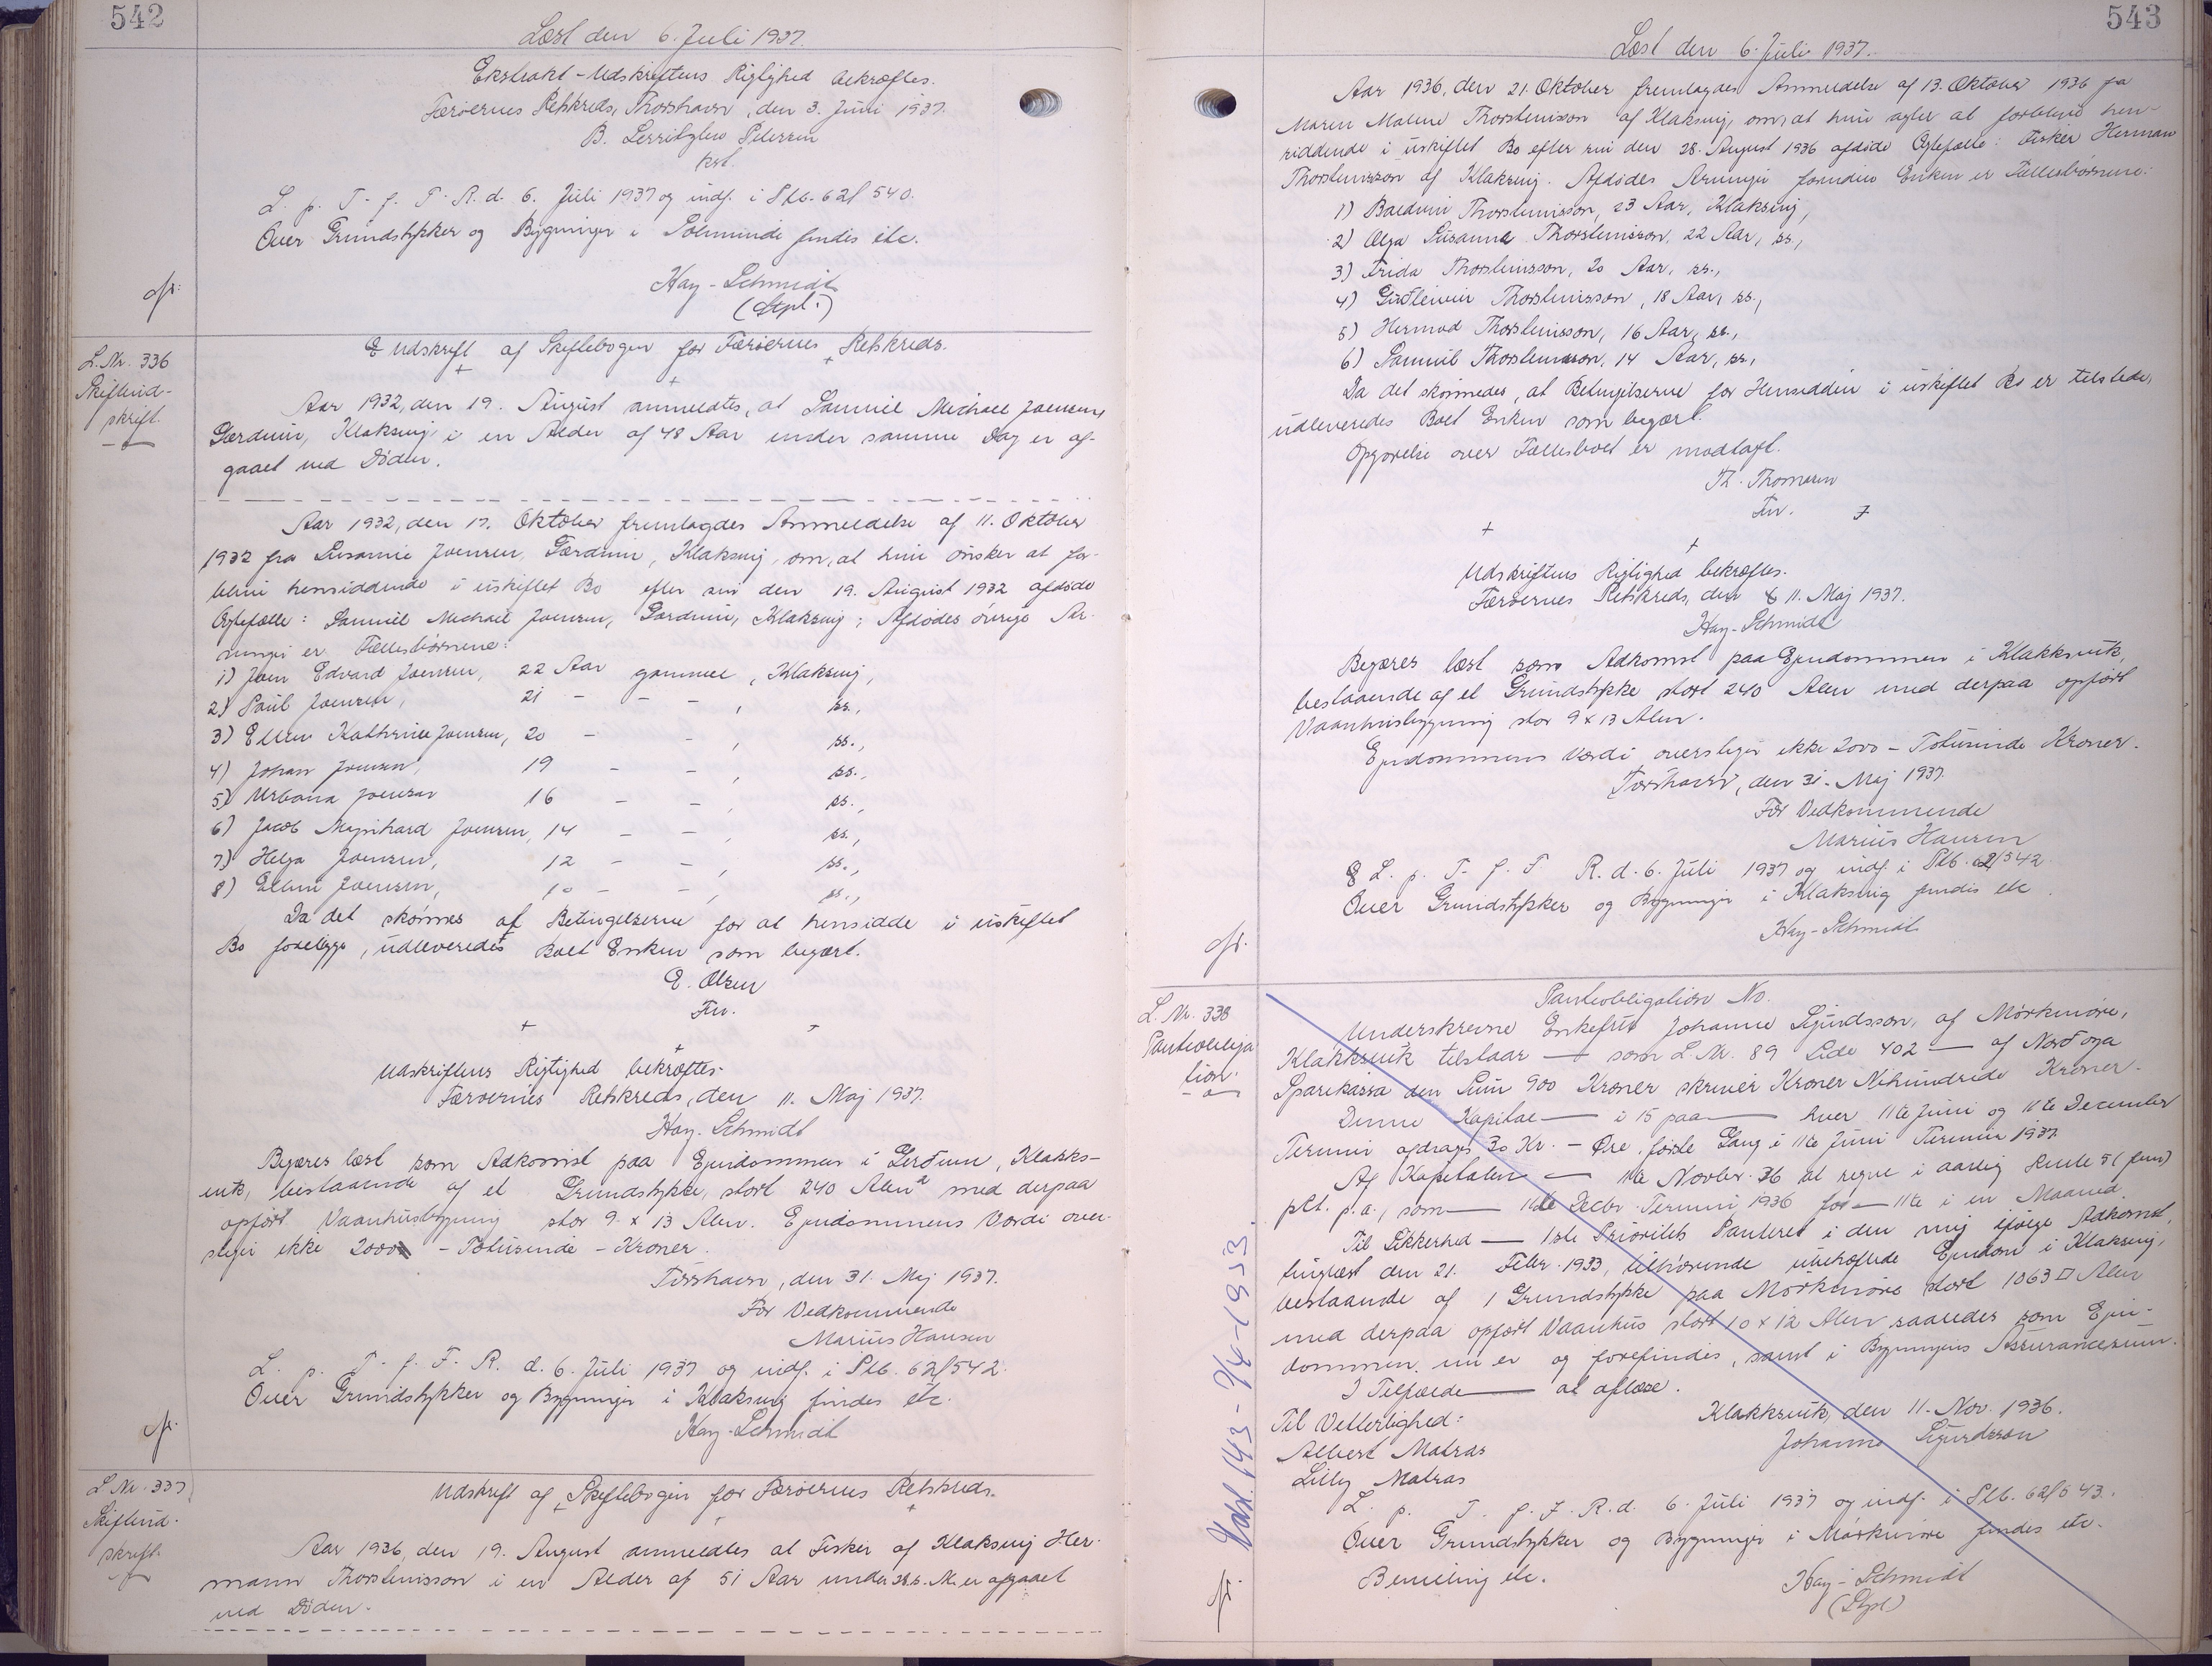 542
Læst den 6. Juli 1937.
Ekstrakt-Udskriftens Rigtighed bekræftes.
Færøernes Retskreds, Thorshavn, den 3. Juni 1937.
B. Pedersen
kst.
L. p. T. f. F. R. d. 6. Juli 1937 og indf. i Ptb. 62/540.
Over Grundstykker og Bygninger i findes etc.
Kay-Schmidt
(Stpl.)
L. Nr. 336
Skifteud-
skrift.
Udskrift af Skiftebogen for Færøernes Retskreds.
Aar 1932, den 19. August anmeldtes, at Samuel Michael Joensen,
Gærdum, Klaksvig i en Alder af 48 Aar under samme Dag er af-
gaaet ved Døden.
Aar 1932, den 17. Oktober fremlagdes Anmeldelse af 11. Oktober
1932 fra Susanne Joensen, Gærdum, Klaksvig, om, at hun ønsker at for-
blive hensiddende i uskiftet Bo efter sin den 19. August 1932 afdøde
Ægtefælle: Samuel Michael Joensen, Gærdum, Klaksvig; Afdødes øvrige Ar-
vinger er Fællesbørnene:
1) Joen Edvard Joensen, 22 Aar gammel, Klaksvig,
2) Paul Joensen, 21 - - - , ss.,
3) Ellen Kathrine Joensen, 20 - - , ss.,
4) Johan Joensen, 19 - - , ss.,
5) Urbana Joensen 16 - - , ss.,
6) Jacob Mejnhard Joensen, 14 - - , ss.,
7) Helga Joensen, 12 - - , ss.,
8) Joensen, 10 - - , ss.,
Da det skønnes at Betingelserne for at hensidde i uskiftet
Bo foreligge, udleveredes Boet Enken som begært.
E. Olsen
Fm.
Udskriftens Rigtighed bekræftes.
Færøernes Retskreds, den 11. Maj 1937.
Kay-Schmidt
Begæres læst som Adkomst paa Ejendommen i Gerðum, Klakks-
vik, bestaaende af et Grundstykke, stort 240 Alen² med derpaa
opført Vaanhusbygning stor 9 x 13 Alen. Ejendommens Værdi over-
stiger ikke 2000 - Totusinde - Kroner.
Tórshavn, den 31. Maj 1937.
For Vedkommende
Marius Hansen
L. p. T. f. F. R. d. 6. Juli 1937 og indf. i Ptb. 62/542.
Over Grundstykker og Bygninger i Klaksvig findes etc.
Kay-Schmidt
L. Nr. 337
Skifteud-
skrift.
Udskrift af Skiftebogen for Færøernes Retskreds.
Aar 1936, den 19. August anmeldtes at Fisker af Klaksvig Her-
mann Thorsteinsson i en Alder af 51 Aar under 28. s. M. er afgaaet
ved Døden.
543
Læst den 6. Juli 1937.
Aar 1936, den 21. Oktober fremlagdes Anmeldelse af 13. Oktober 1936 fra
Maren Malene Thorsteinsson af Klaksvig, om, at hun agter at forblive hen-
siddende i uskiftet Bo efter sin den 28. August 1936 afdøde Ægtefælle: Fisker Herman
Thorsteinsson af Klaksvig. Afdødes Arvinger foruden Enken er Fællesbørnene:
1) Baldvin Thorsteinsson, 23 Aar, Klaksvig,
2) Olga Susanna Thorsteinsson, 22 Aar, ss.,
3) Frida Thorsteinsson, 20 Aar, ss.,
4) Guðleivur Thorsteinsson, 18 Aar, ss.,
5) Hermod Thorsteinsson, 16 Aar, ss.,
6) Samuel Thorsteinsson, 14 Aar, ss.,
Da det skønnedes, at Betingelserne for Hensidden i uskiftet Bo er tilstede,
udleveredes Boet Enken som begært.
Opgørelse over Fællesboet er modtaget.
Th. Thomsen
Fm.
Udskriftens Rigtighed bekræftes.
Færøernes Retskreds, den 11. Maj 1937.
Kay-Schmidt
Begæres læst som Adkomst paa Ejendommen i Klakksvik,
bestaaende af et Grundstykke stort 240 Alen med derpaa opført
Vaanhusbygning stor 9 x 13 Alen.
Ejendommens Værdi overstiger ikke 2000 - Totusinde Kroner.
Tórshavn, den 31. Maj 1937.
For Vedkommende
Marius Hansen
L. p. T. f. F. R. d. 6. Juli 1937 og indf. i Ptb. 62/542
Over Grundstykker og Bygninger i Klaksvig findes etc
Kay-Schmidt
L. Nr. 338
Panteobliga
tion.
Panteobligation No.
Underskrevne Enkefru Johanne Sjúrdsson, af Mørkinøre,
Klakksvik tilstaar — som L. Nr. 89 Side 402 — af Norðoya
Sparikassa den Sum 900 Kroner skriver Kroner Nihundrede Kroner.
Denne Kapital — i 15 paa — hver 11te Juni og 11te December
Termin afdrages 30 Kr. - Øre første Gang i 11te Juni Termin 1937.
Af Kapitalen — 11te Novbr. 36 at regne i aarlig Rente 5 (fem)
pCt. p.a., som — 11te Decbr. Termin 1936 for — 11te i en Maaned.
Til Sikkerhed — 1ste Prioritets Panteret i den mig ifølge Adkomst,
tinglæst den 21. Febr. 1933, tilhørende ubehæftede Ejendom i Klaksvig,
bestaaende af 1 Grundstykke paa Mørkinøre stort 1063 □ Alen
med derpaa opført Vaanhus stort 10 x 12 Alen saaledes som Ejen-
dommen nu er og forefindes, samt i Bygningens Assurancesum.
I Tilfælde — at aflæse.
Til Vitterlighed:
Klakksvik, den 11. Nov. 1936.
Albert Matras
Johanne Sjúrdsson
Lilly Matras
L. p. T. f. F. R. d. 6. Juli 1937 og indf. i Ptb. 62/543.
Over Grundstykker og Bygninger i Mørkinøre findes etc.
Bevilling etc.
Kay-Schmidt
(Stpl)
Udsl. 143 - 7/4-1953.